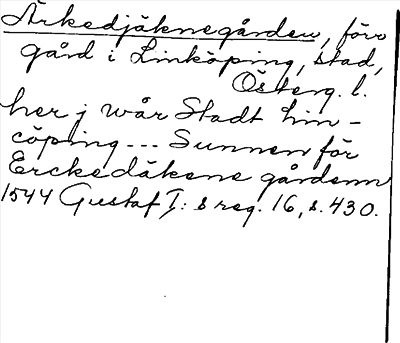 Ärkedjäknegården, förr
gård i Linköping, stad,
Österg. l.
her j wår Stadt Lin-
cöping --- Sunnen för
Erckedäkene gårdenn
1544 Gustaf I: s reg. 16, s. 430.